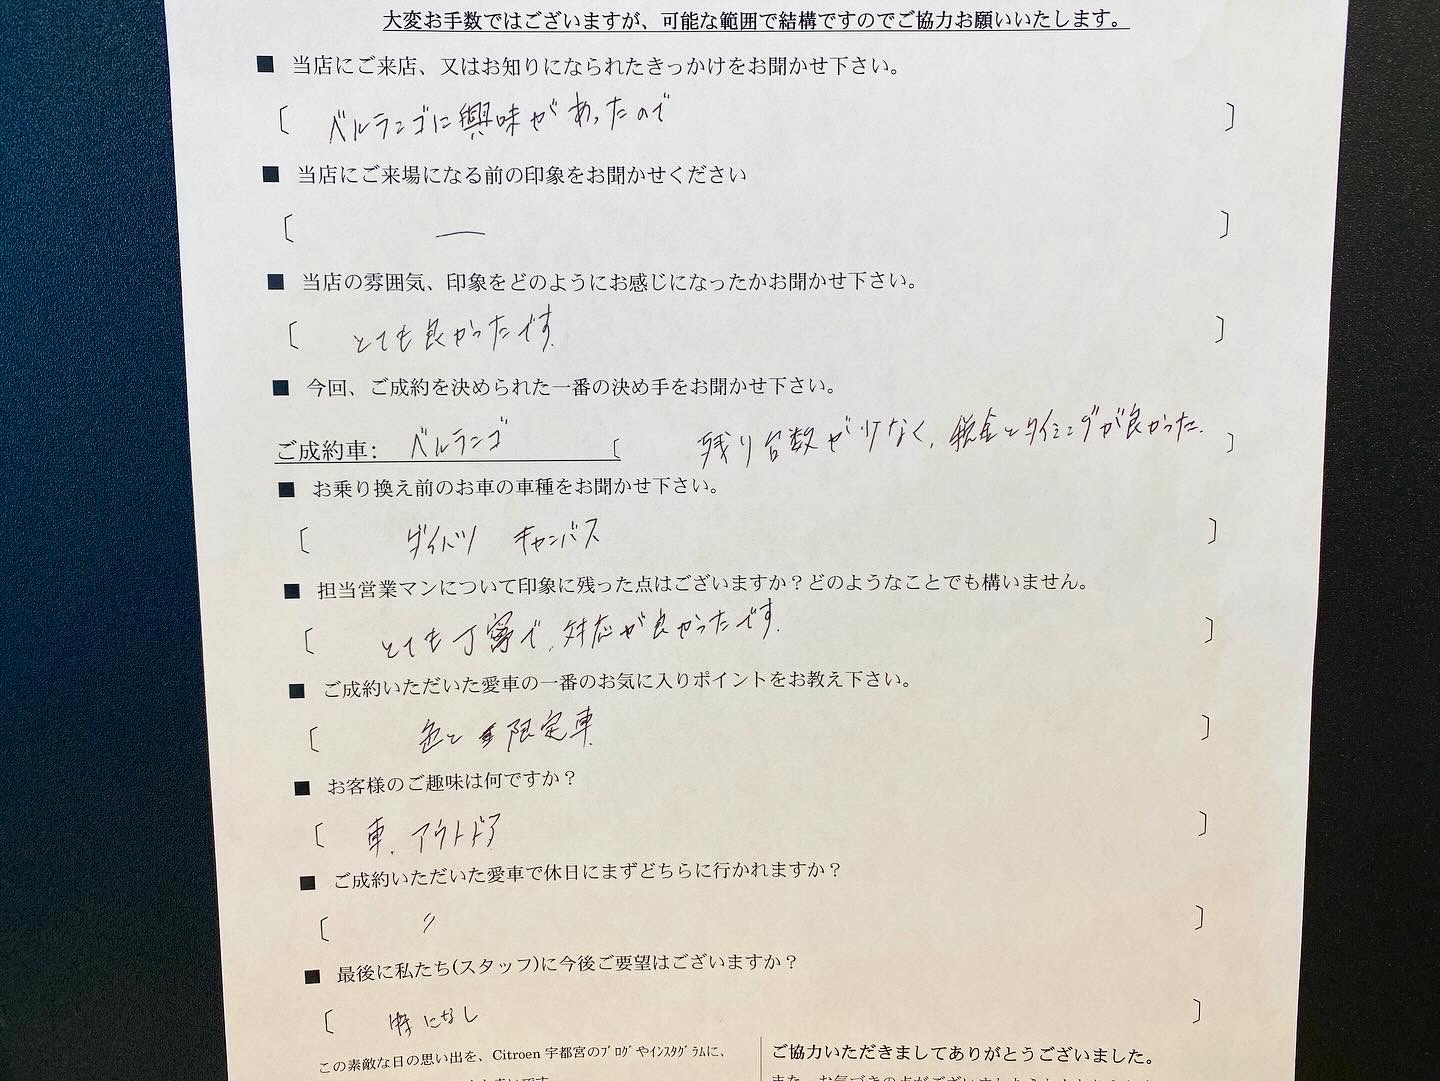 大変お手数ではございますが、可能な範囲で結構ですのでご協力お願いいたします。
■ 当店にご来店、又はお知りになられたきっかけをお聞かせ下さい。
〔 ベルランゴに興味があったので 〕
■ 当店にご来場になる前の印象をお聞かせください
〔 ― 〕
■ 当店の雰囲気、印象をどのようにお感じになったかお聞かせ下さい。
〔 とても良かったです. 〕
■ 今回、ご成約を決められた一番の決め手をお聞かせ下さい。
ご成約車: ベルランゴ 〔 残り台数が少なく、税金とタイミングが良かった. 〕
■ お乗り換え前のお車の車種をお聞かせ下さい。
〔 ダイハツ キャンバス 〕
■ 担当営業マンについて印象に残った点はございますか？どのようなことでも構いません。
〔 とても丁寧で、対応が良かったです. 〕
■ ご成約いただいた愛車の一番のお気に入りポイントをお教え下さい。
〔 色と限定車 〕
■ お客様のご趣味は何ですか？
〔 車、アウトドア 〕
■ ご成約いただいた愛車で休日にまずどちらに行かれますか？
〔 〃 〕
■ 最後に私たち(スタッフ)に今後ご要望はございますか？
〔 特になし 〕
この素敵な日の思い出を、Citroen 宇都宮のﾌﾞﾛｸﾞやｲﾝｽﾀｸﾞﾗﾑに、
ご協力いただきましてありがとうございました。